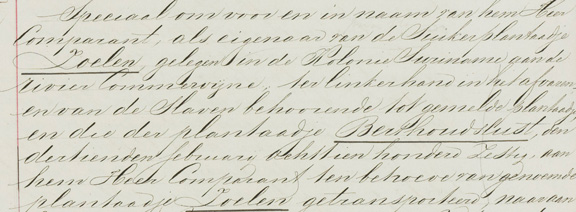 Speciaal om voor en in naam van hem Heer
Comparant, als eigenaar van de Suikerplantaadje
Zoelen, gelegen in de Kolonie Suriname aan de
rivier Commewijne, ter linkerhand in het afvaren
en van de Slaven behoorende tot gemelde plantaadje
en die der plantaadje Berthoudslust, den
dertienden februarij achttien honderd Zestig, aan
hem Heer Comparant ten behoeve van genoemde
plantaadje Zoelen getransporteerd, naar aan